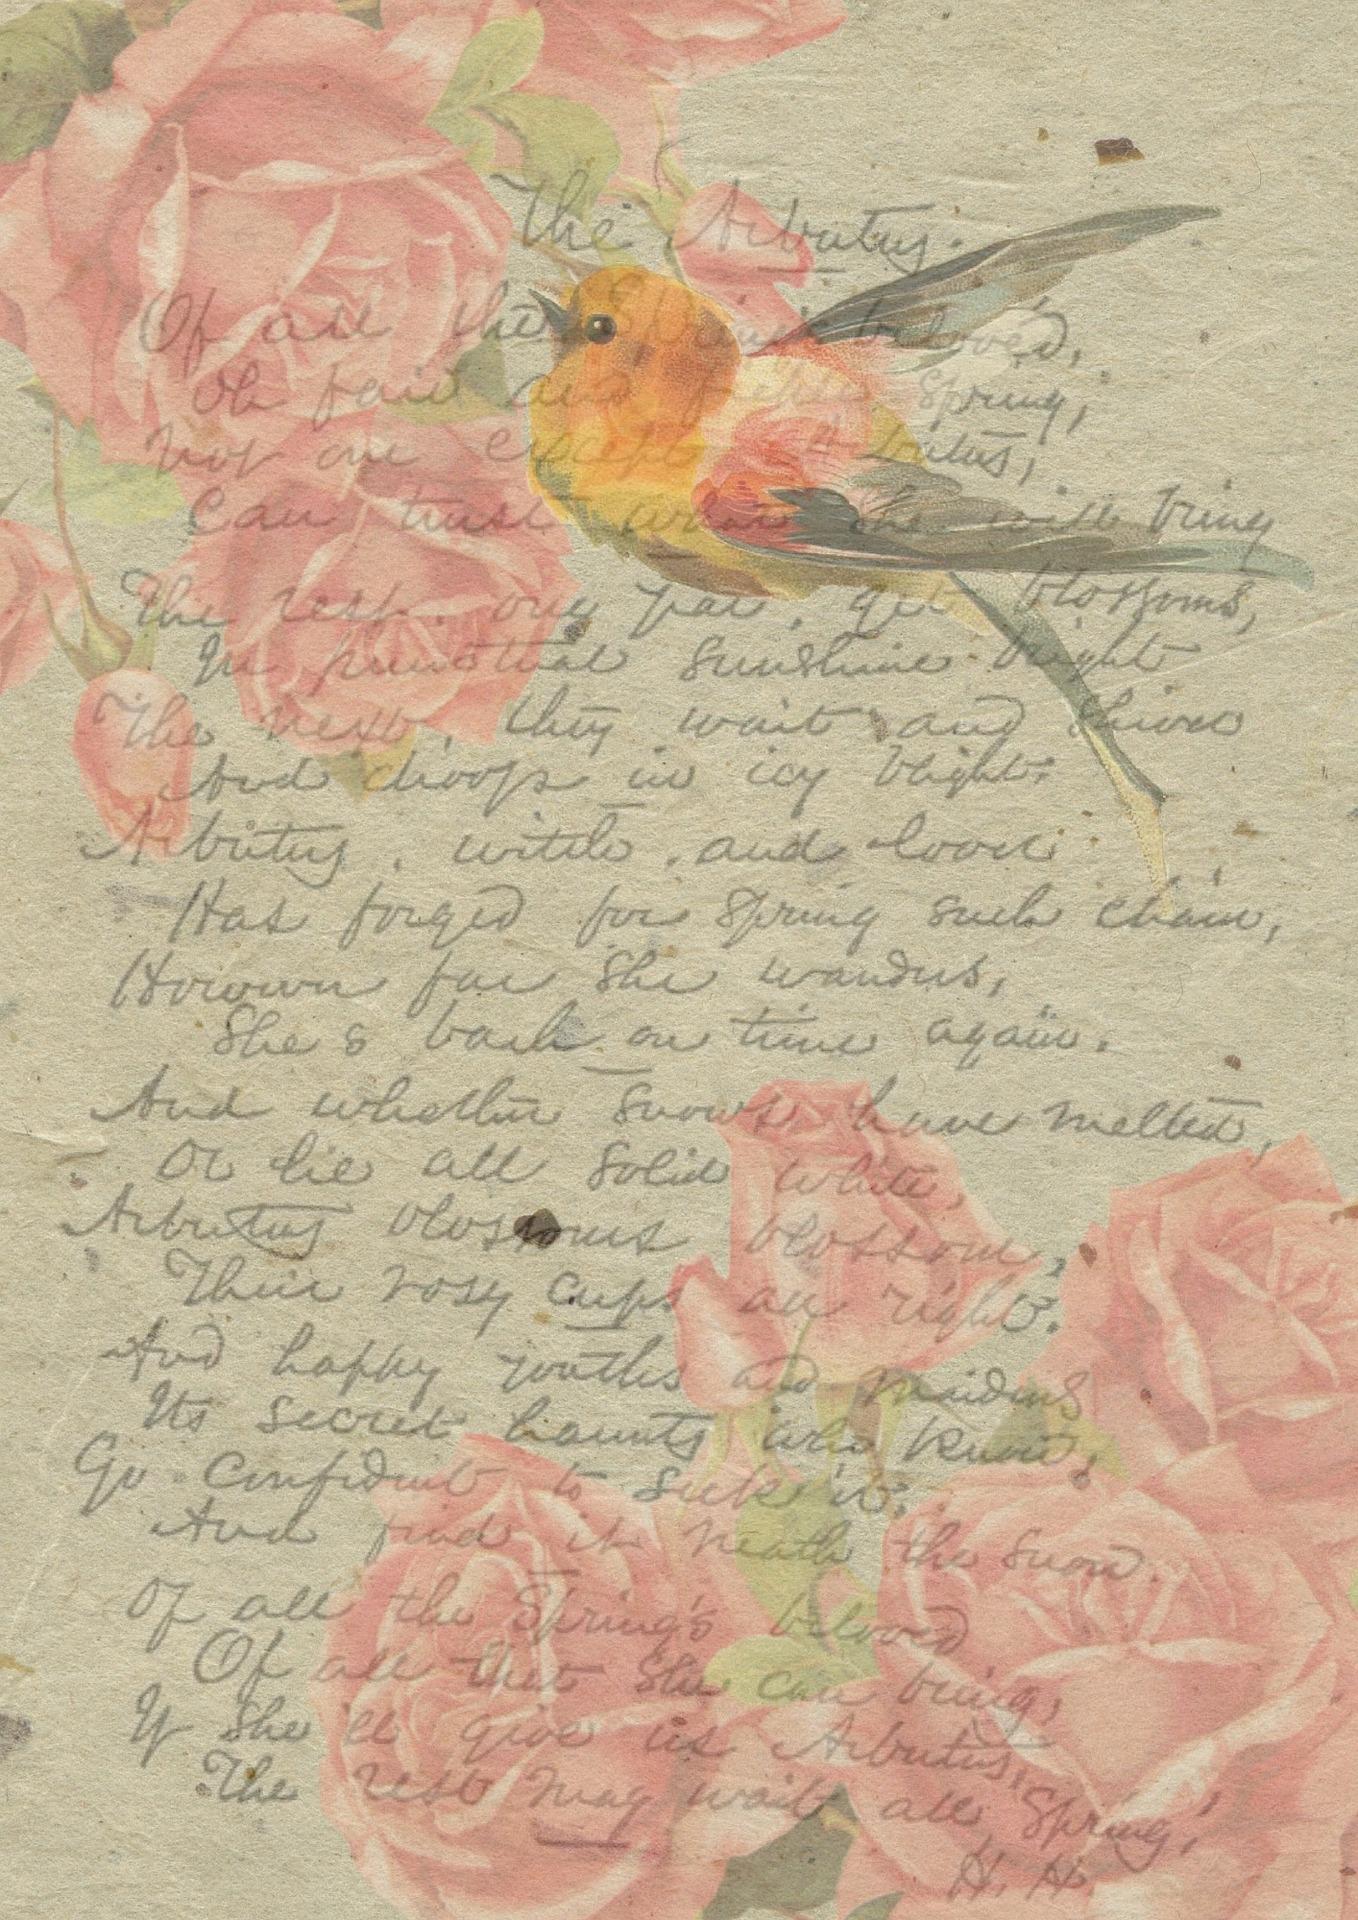 The Arbutus.
Of all the Spring's beloved,
Oh fair and fickle Spring,
Not one except Arbutus,
Can trust what she will bring
The rest, one year, get blossoms,
In punctual sunshine bright
The next, they wait and shiver
And droop in icy blight:
Arbutus, witch, and lover
Has forged for Spring such chain,
However far she wanders,
She's back on time again.
And whether snows have melted,
Or lie all solid white,
Arbutus blossoms blossom,
Their rosy cups all right.
And happy youths and maidens
Its secret haunts who know,
Go confident to seek it.
And find it neath the snow.
Of all the Spring's beloved
Of all that she can bring,
If she'll give us Arbutus,
The rest may wait all Spring,
H. H.